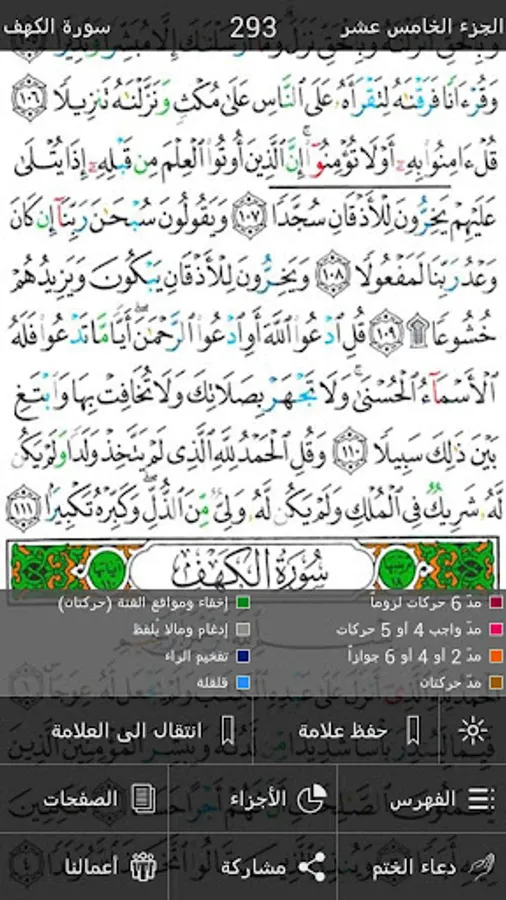 الجزء الخامس عشر 293 سورة الكهف
وَقُرْءَانًا فَرَقْنَٰهُ لِتَقْرَأَهُۥ عَلَى ٱلنَّاسِ عَلَىٰ مُكْثٍ وَنَزَّلْنَٰهُ تَنزِيلًا ١٠٦
قُلْ ءَامِنُوا۟ بِهِۦٓ أَوْ لَا تُؤْمِنُوٓا۟ إِنَّ ٱلَّذِينَ أُوتُوا۟ ٱلْعِلْمَ مِن قَبْلِهِۦٓ إِذَا يُتْلَىٰ
عَلَيْهِمْ يَخِرُّونَ لِلْأَذْقَانِ سُجَّدًا ١٠٧ وَيَقُولُونَ سُبْحَٰنَ رَبِّنَآ إِن كَانَ
وَعْدُ رَبِّنَا لَمَفْعُولًا ١٠٨ وَيَخِرُّونَ لِلْأَذْقَانِ يَبْكُونَ وَيَزِيدُهُمْ
خُشُوعًا ۩ ١٠٩ قُلِ ٱدْعُوا۟ ٱللَّهَ أَوِ ٱدْعُوا۟ ٱلرَّحْمَٰنَ ۖ أَيًّا مَّا تَدْعُوا۟ فَلَهُ
ٱلْأَسْمَآءُ ٱلْحُسْنَىٰ ۚ وَلَا تَجْهَرْ بِصَلَاتِكَ وَلَا تُخَافِتْ بِهَا وَٱبْتَغِ
بَيْنَ ذَٰلِكَ سَبِيلًا ١١٠ وَقُلِ ٱلْحَمْدُ لِلَّهِ ٱلَّذِى لَمْ يَتَّخِذْ وَلَدًا وَلَمْ يَكُن
لَّهُۥ شَرِيكٌ فِى ٱلْمُلْكِ وَلَمْ يَكُن لَّهُۥ وَلِىٌّ مِّنَ ٱلذُّلِّ ۖ وَكَبِّرْهُ تَكْبِيرًۢا ١١١
سُورَةُ الكَهْفِ
مدّ 6 حركات لزوماً
مدّ واجب 4 أو 5 حركات
مدّ 2 أو 4 أو 6 جوازاً
مدّ حركتان
إخفاء ومواقع الغنة (حركتان)
إدغام ومالا يُلفظ
تفخيم الراء
قلقلة
حفظ علامة
انتقال الى العلامة
الفهرس
الأجزاء
الصفحات
دعاء الختم
مشاركة
أعمالنا